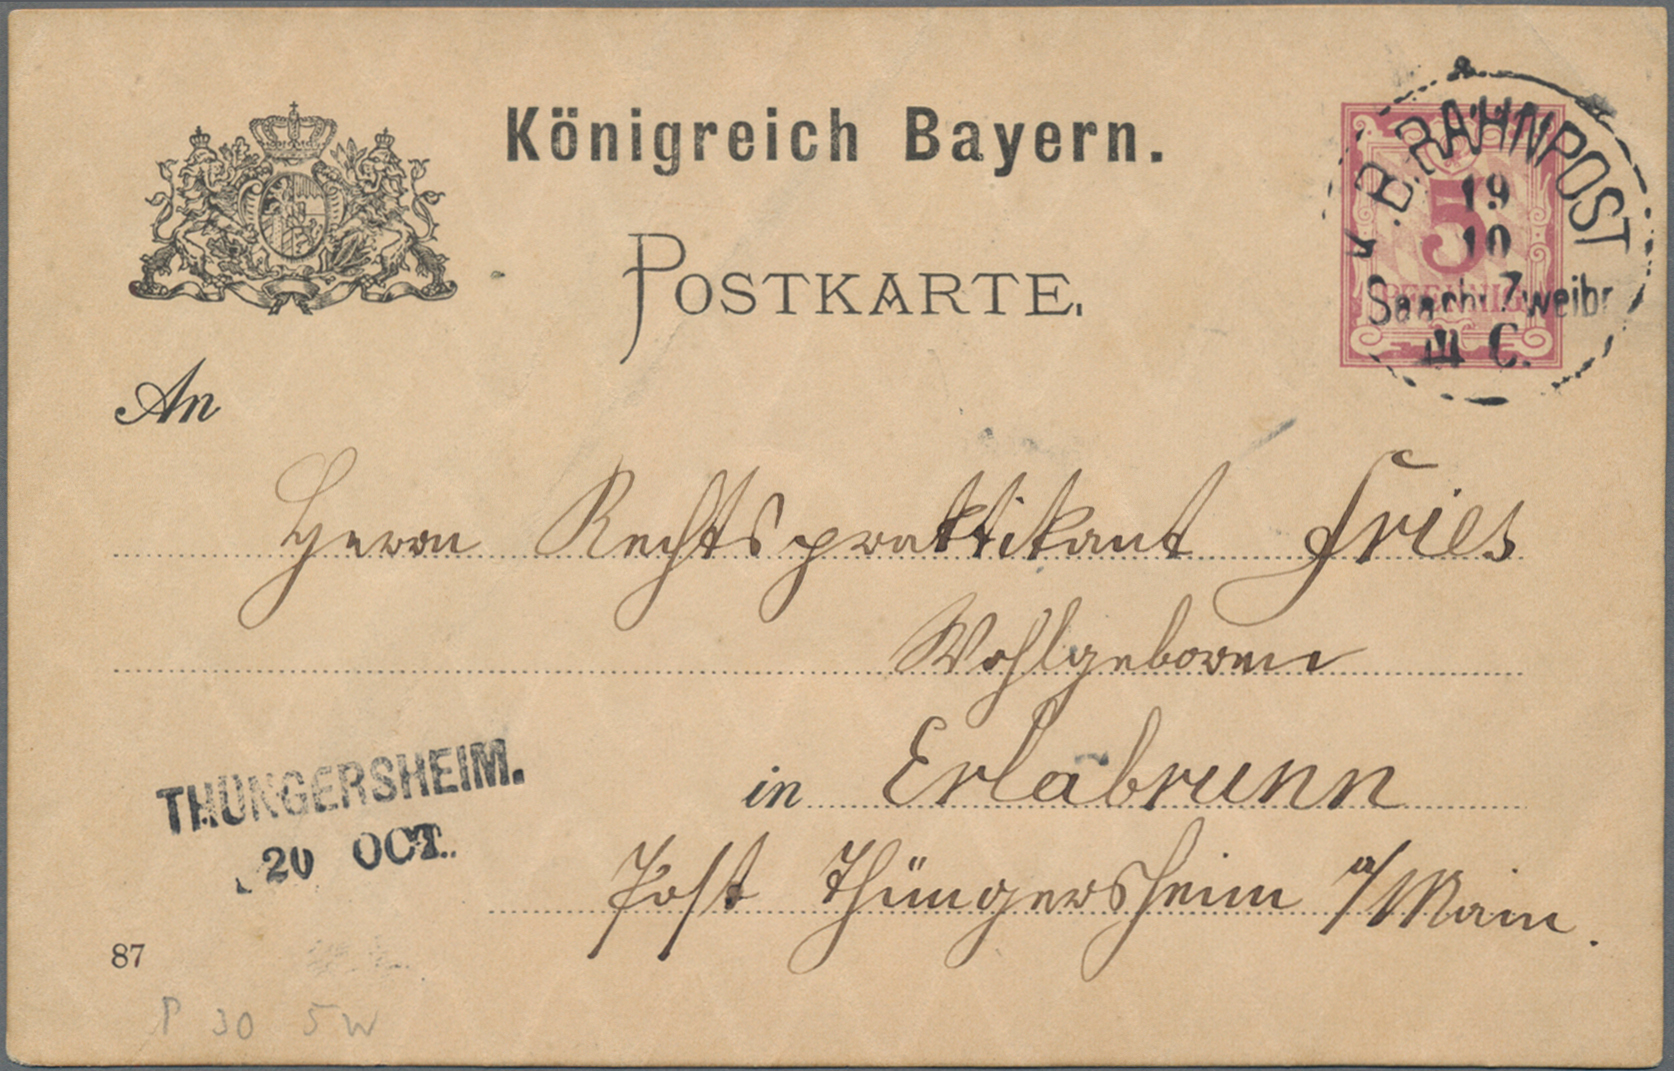 Königreich Bayern.
POSTKARTE.
K. B. BAHNPOST
19
10
Saarbr. Zweibr
III C.
5
PFENNIG
An
Herrn Rechtspraktikant Fries
Wohlgeboren
in Erlabrunn
Post Thüngersheim a/Main.
THÜNGERSHEIM.
20 OCT.
87
P 30 5W